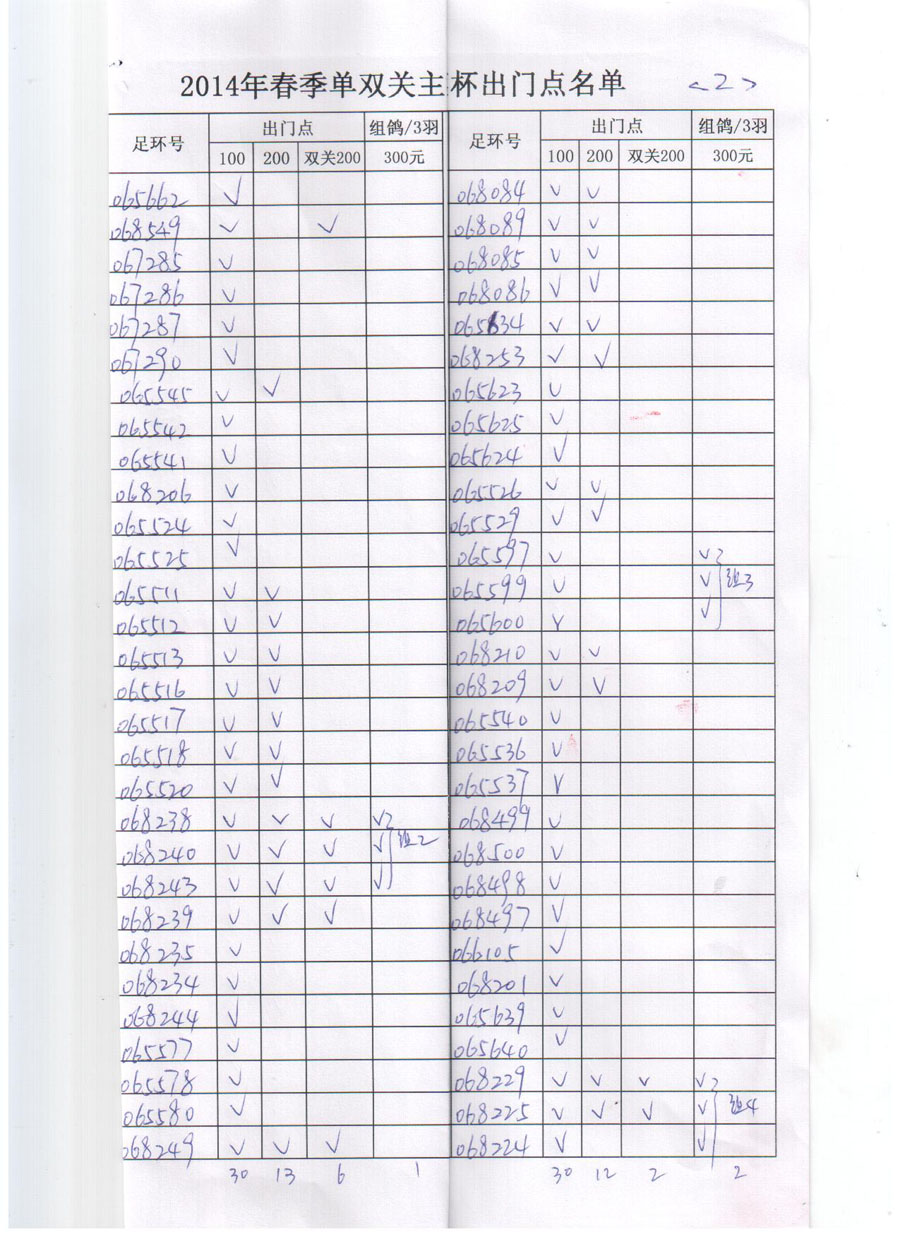 2014年春季单双关主杯出门点名单 <2>
足环号 出门点 组鸽/3羽 足环号 出门点 组鸽/3羽
100 200 双关200 300元 100 200 双关200 300元
065662 √ 068084 √ √
068549 √ √ 068089 √ √
067285 √ 068085 √ √
067286 √ 068086 √ √
067287 √ 065634 √ √
067290 √ 068253 √ √
065545 √ √ 065623 √
065542 √ 065625 √
065541 √ 065624 √
068206 √ 065526 √ √
065524 √ 065529 √ √
065525 √ 065597 √ √
065511 √ √ 065599 √ √ 组3
065512 √ √ 065600 √ √
065513 √ √ 068210 √ √
065516 √ √ 068209 √ √
065517 √ √ 065540 √
065518 √ √ 065536 √
065520 √ √ 065537 √
068238 √ √ √ √ 068499 √
068240 √ √ √ √ 组2 068500 √
068243 √ √ √ √ 068498 √
068239 √ √ √ 068497 √
068235 √ 066105 √
068234 √ 068201 √
068244 √ 065639 √
065577 √ 065640 √
065578 √ 068229 √ √ √ √
065580 √ 068225 √ √ √ √ 组4
068249 √ √ √ 068224 √ √
30 13 6 1 30 12 2 2